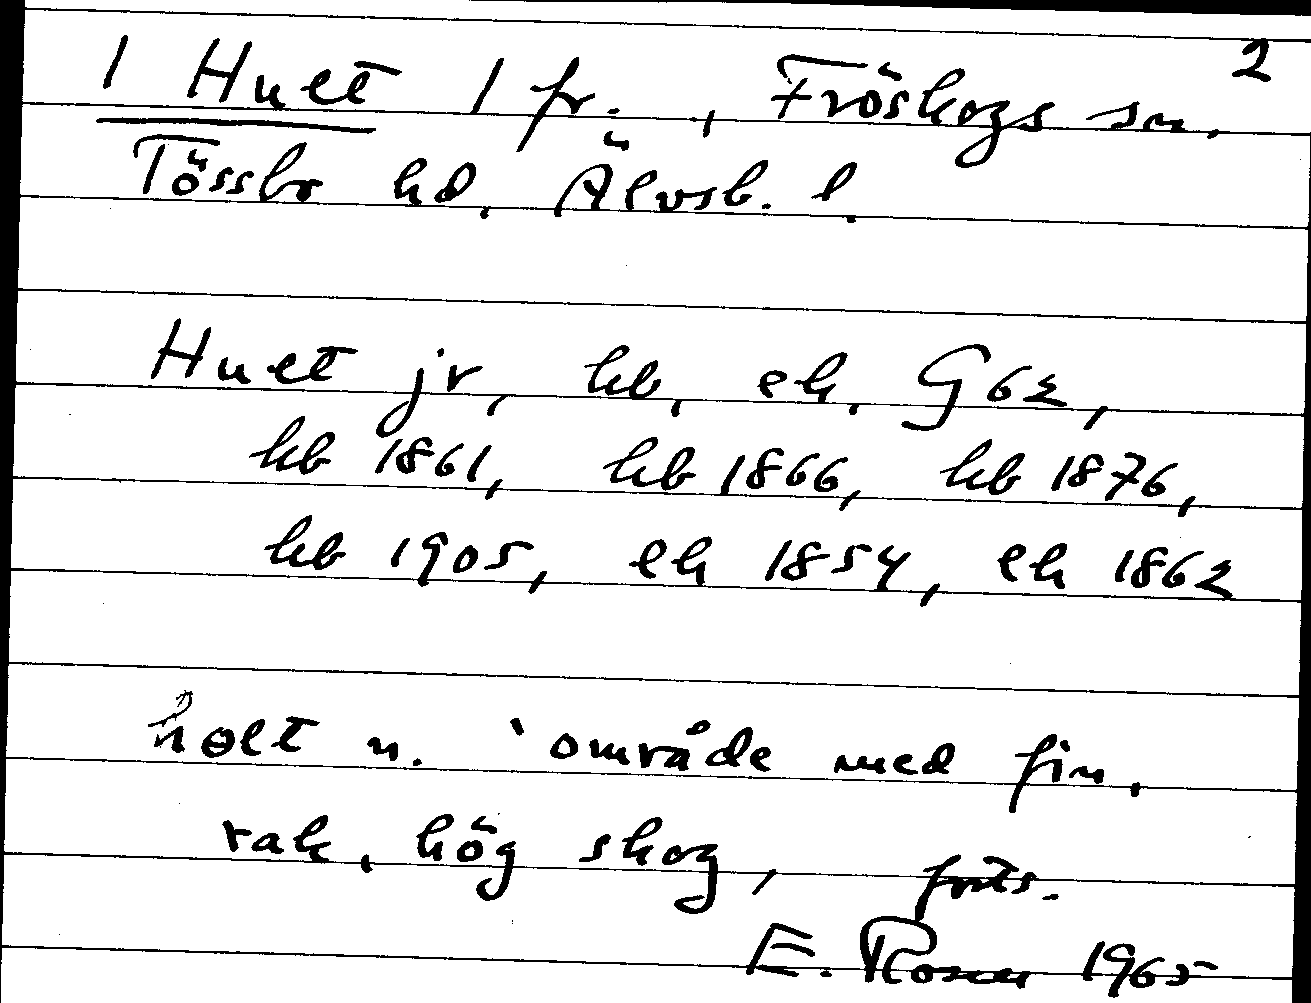 2
1 Hult 1 fr., Fröskogs sn,
Tössbo hd, Älvsb. l.
Hult jr, hb, ek, G62,
hb 1861, hb 1866, hb 1876,
hb 1905, ek 1854, ek 1862
hølt n. 'område med fin,
rak, hög skog, forts.
E. Rosen 1965